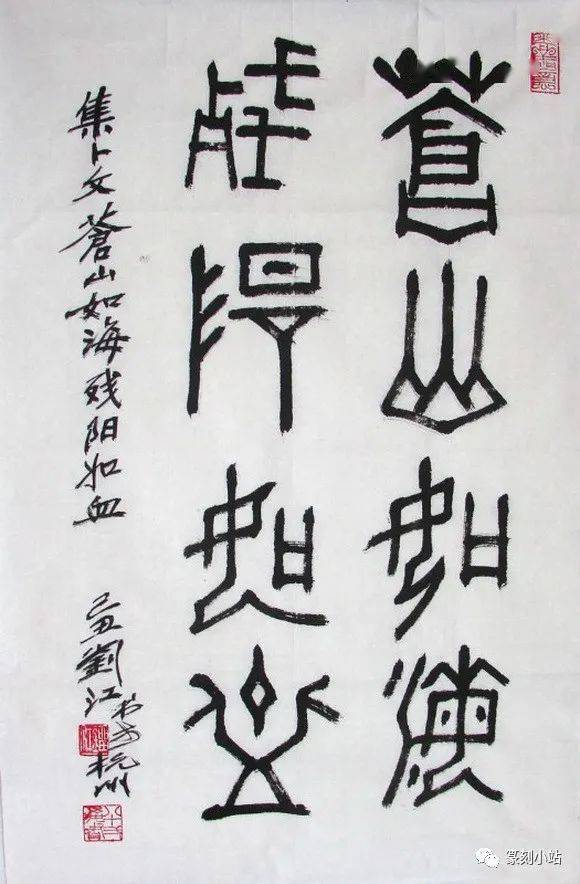 蒼山如海
殘陽如血
集卜文蒼山如海残阳如血
己丑劉江书於杭州
篆刻小站